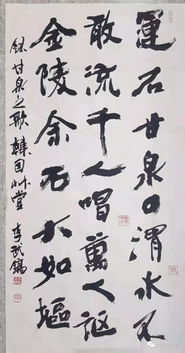 運石甘泉口渭水不
敢流千人唱萬人謳
金陵余石大如塸
錄甘泉之歌